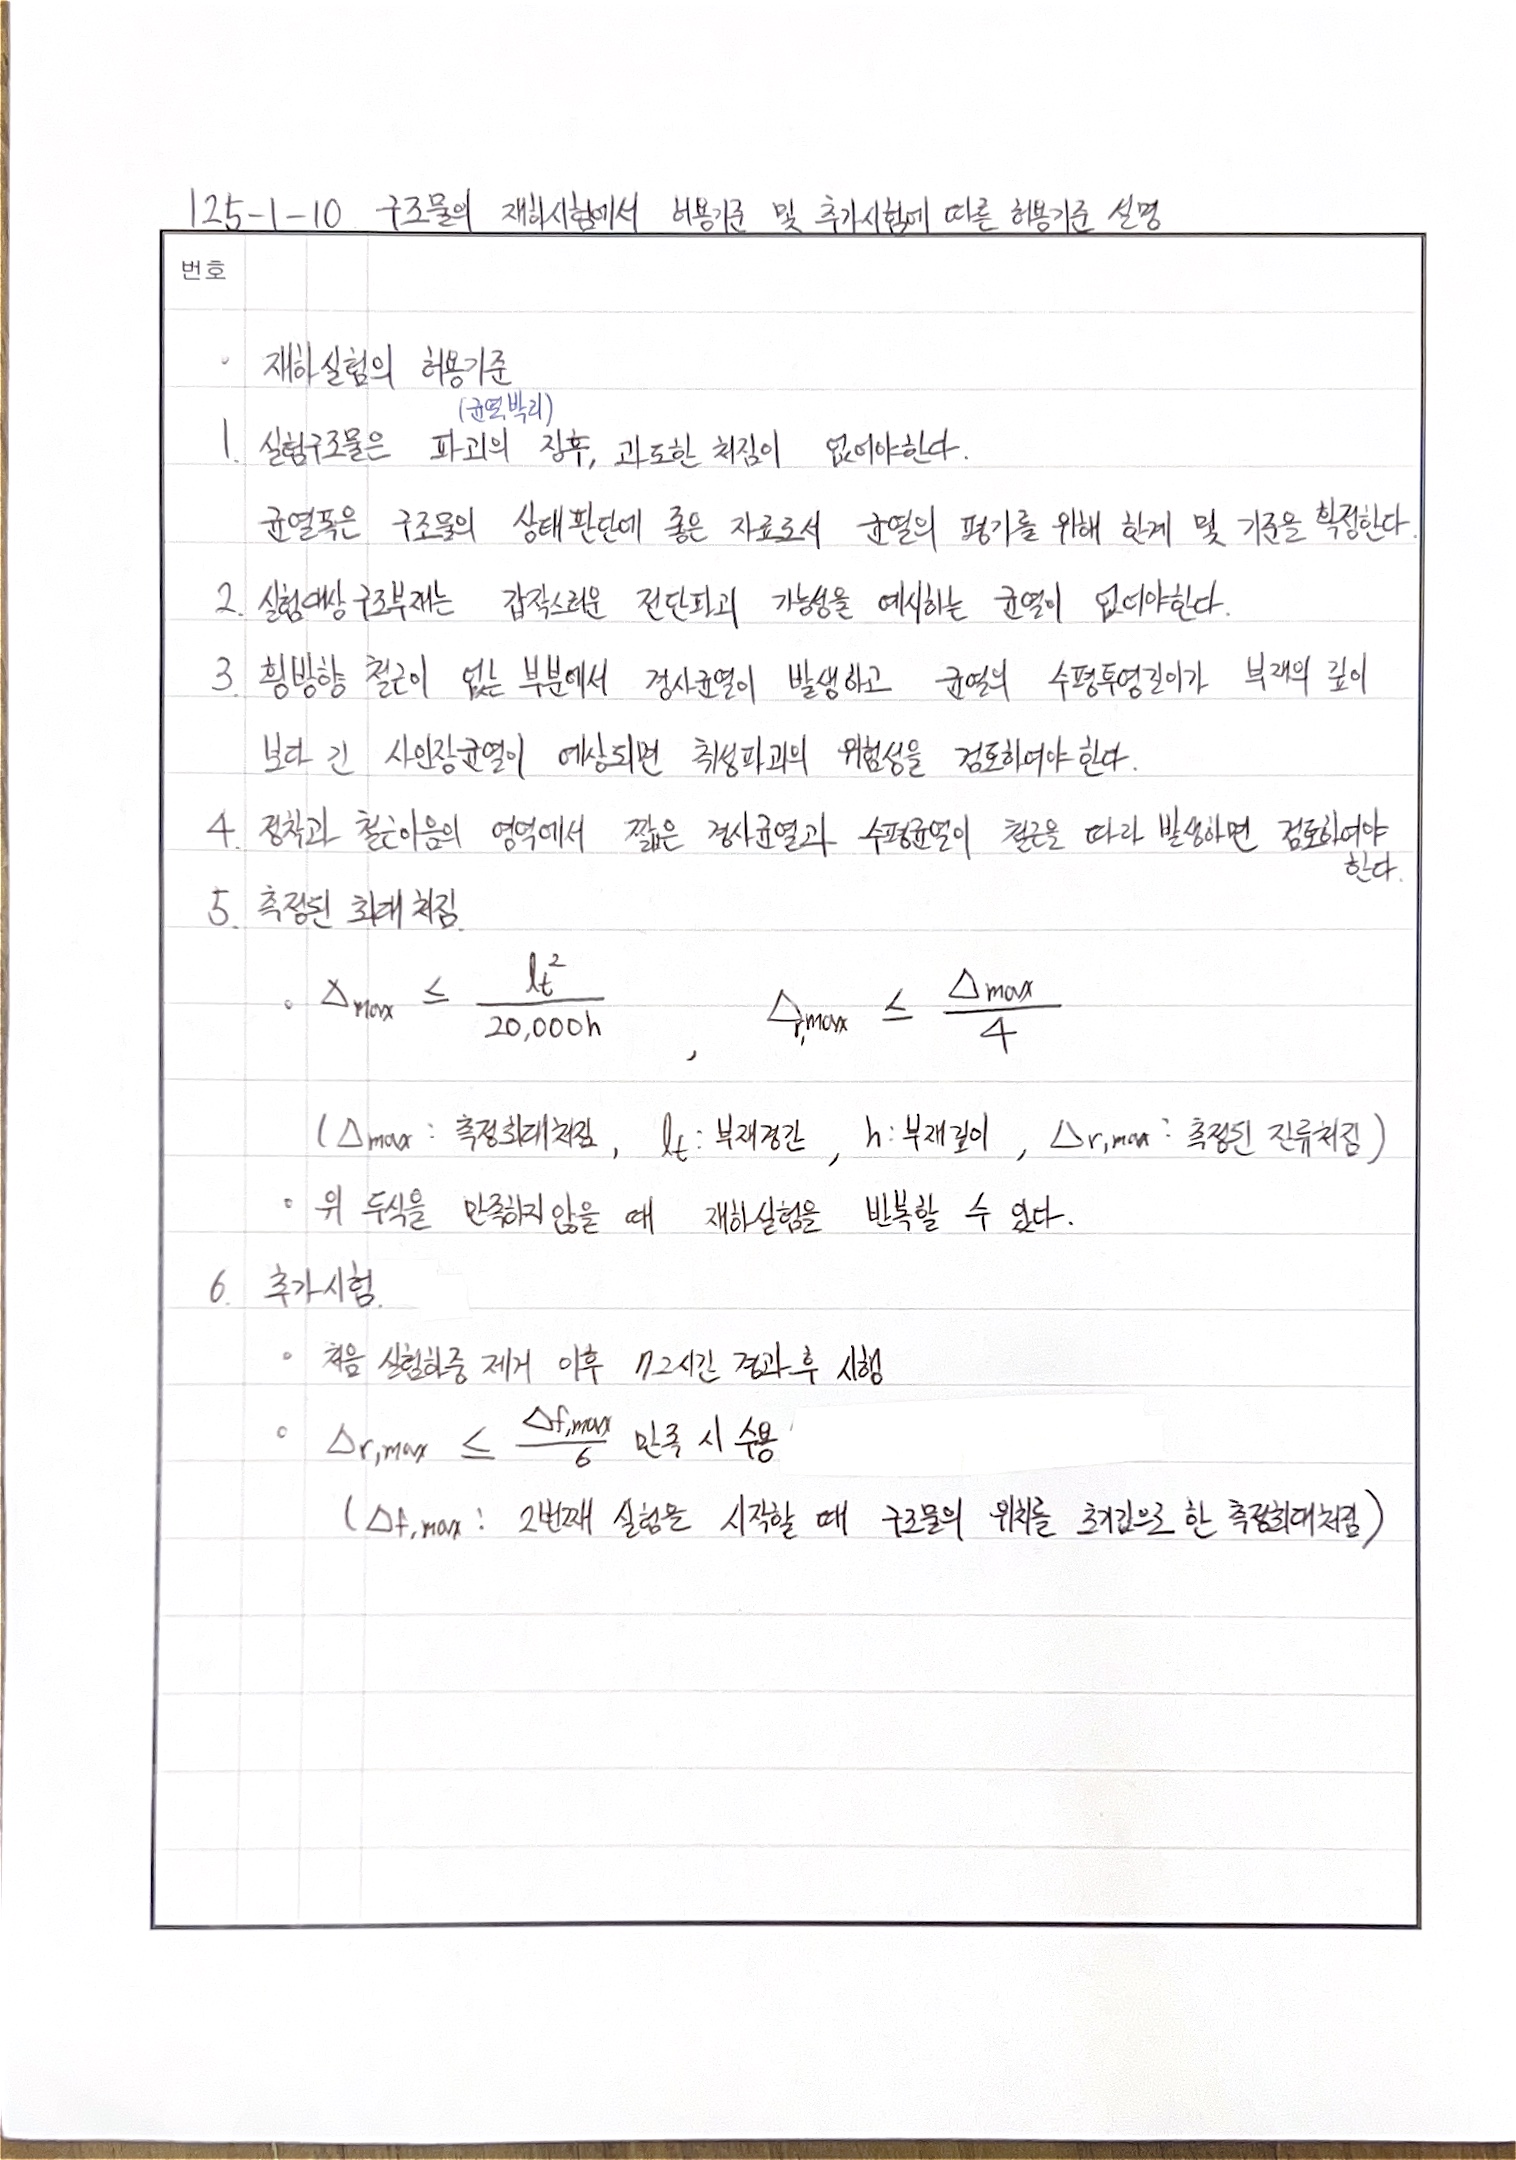 125-1-10 구조물의 재하시험에서 허용기준 및 추가시험에 따른 허용기준 설명
번호
◦ 재하실험의 허용기준
(균열, 박리)
1. 실험구조물은 파괴의 징후, 과도한 처짐이 없어야한다.
균열폭은 구조물의 상태판단에 좋은 자료로서 균열의 평가를 위해 한계 및 기준을 확정한다.
2. 실험대상구조부재는 갑작스러운 전단파괴 가능성을 예시하는 균열이 없어야한다.
3. 횡방향 철근이 없는 부분에서 경사균열이 발생하고 균열의 수평투영길이가 부재의 깊이
보다 긴 사인장균열이 예상되면 취성파괴의 위험성을 검토하여야한다.
4. 정착과 철근이음의 영역에서 짧은 경사균열과 수평균열이 철근을 따라 발생하면 검토하여야
한다.
5. 측정된 최대처짐.
◦ Δmax ≤ lt²/20,000h , Δr,max ≤ Δmax/4
(Δmax : 측정최대처짐, lt : 부재경간, h : 부재깊이, Δr,max : 측정된 잔류처짐)
◦ 위 두식을 만족하지않을 때 재하실험을 반복할 수 있다.
6. 추가시험.
◦ 처음 실험하중 제거 이후 72시간 경과 후 시행
◦ Δr,max ≤ Δf,max/6 만족 시 수용
(Δf,max : 2번째 실험을 시작할 때 구조물의 위치를 초기값으로 한 측정최대처짐)